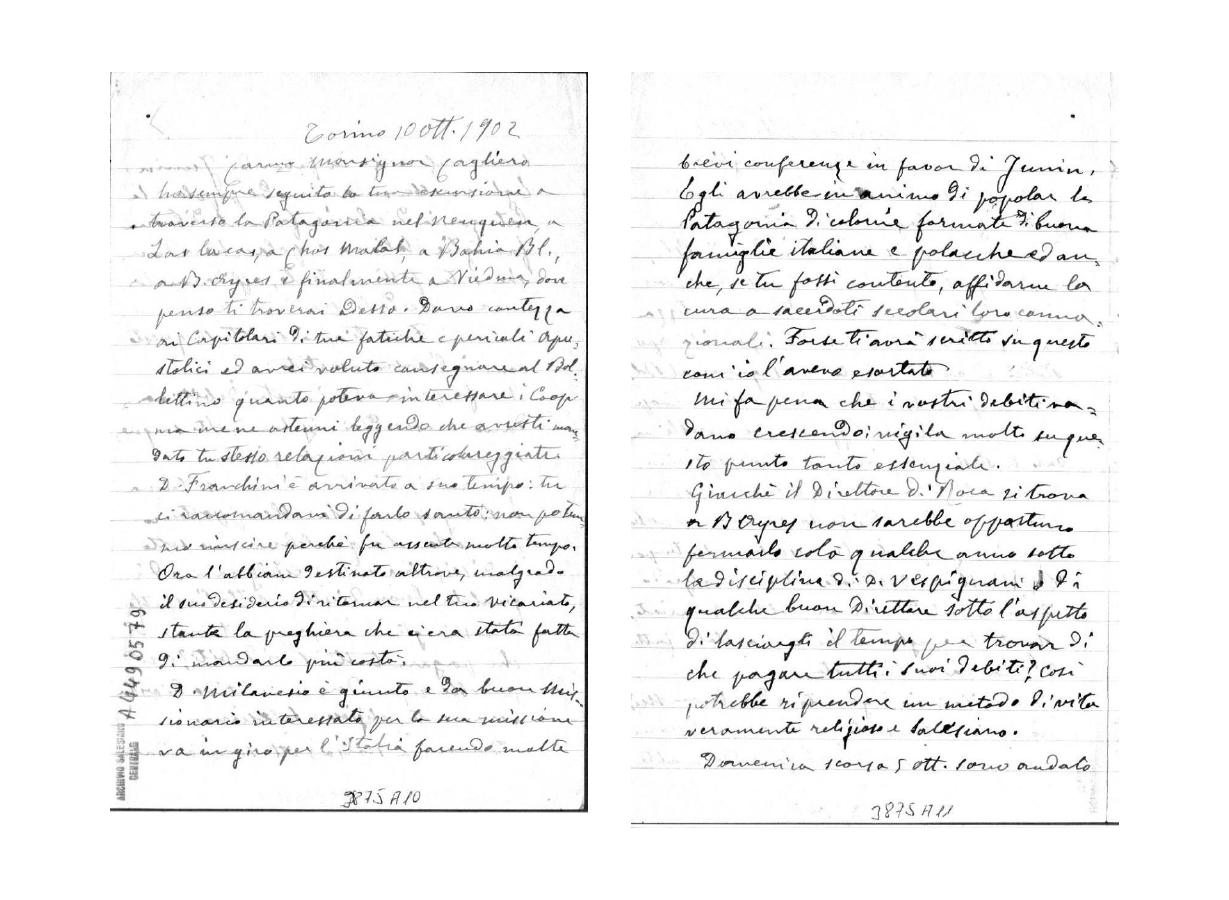 Torino 10 ott. 1902
Carmo Monsignor Cagliero
ho sempre seguito la tua escursione a
traverso la Patagonia nel Neuquen, a
Las lacas, a Chos Malal, a Bahia Bl.,
a B. Ayres e finalmente a Viedma, dove
penso ti troverai desso. Davo contezza
ai Capitolari di tue fatiche e pericoli apo=
stolici ed avrei voluto consegnare al Bol=
lettino quanto poteva interessare i Coop
ma me ne astenni leggendo che avresti man=
dato tu stesso relazioni particolareggiate.
D. Franchini è arrivato a suo tempo: tu
ci raccomandavi di farlo santo: non potem=
mo riuscire perché fu assente molto tempo.
Ora l'abbiam destinato altrove, malgrado
il suo desiderio di ritornar nel tuo vicariato,
stante la preghiera che ci era stata fatta
di mandarlo più costà.
D. Milanesio è giunto e da buon Mis=
sionario interessato per la sua missione
va in giro per l'Italia facendo molte
ARCHIVIO SALESIANO
CENTRALE
A 449 05 79
3875 A 10
brevi conferenze in favor di Junin.
Egli avrebbe in animo di popolar la
Patagonia di colonie formate di buone
famiglie italiane e polacche ed an=
che, se tu fossi contento, affidarne la
cura a sacerdoti secolari loro conna=
zionali. Forse ti avrà scritto su questo
com'io l'aveva esortato
Mi fa pena che i vostri debiti va=
dano crescendo: vigila molto su que=
sto punto tanto essenziale.
Giacchè il Direttore di Roca si trova
a B Ayres non sarebbe opportuno
fermarlo colà qualche anno sotto
la disciplina di D. Vespignani o di
qualche buon Direttore sotto l'aspetto
di lasciargli il tempo per trovar di
che pagare tutti i suoi debiti? Così
potrebbe riprendere un metodo di vita
veramente religioso e Salesiano.
Domenica scorsa 5 ott. sono andato
3875 A 11